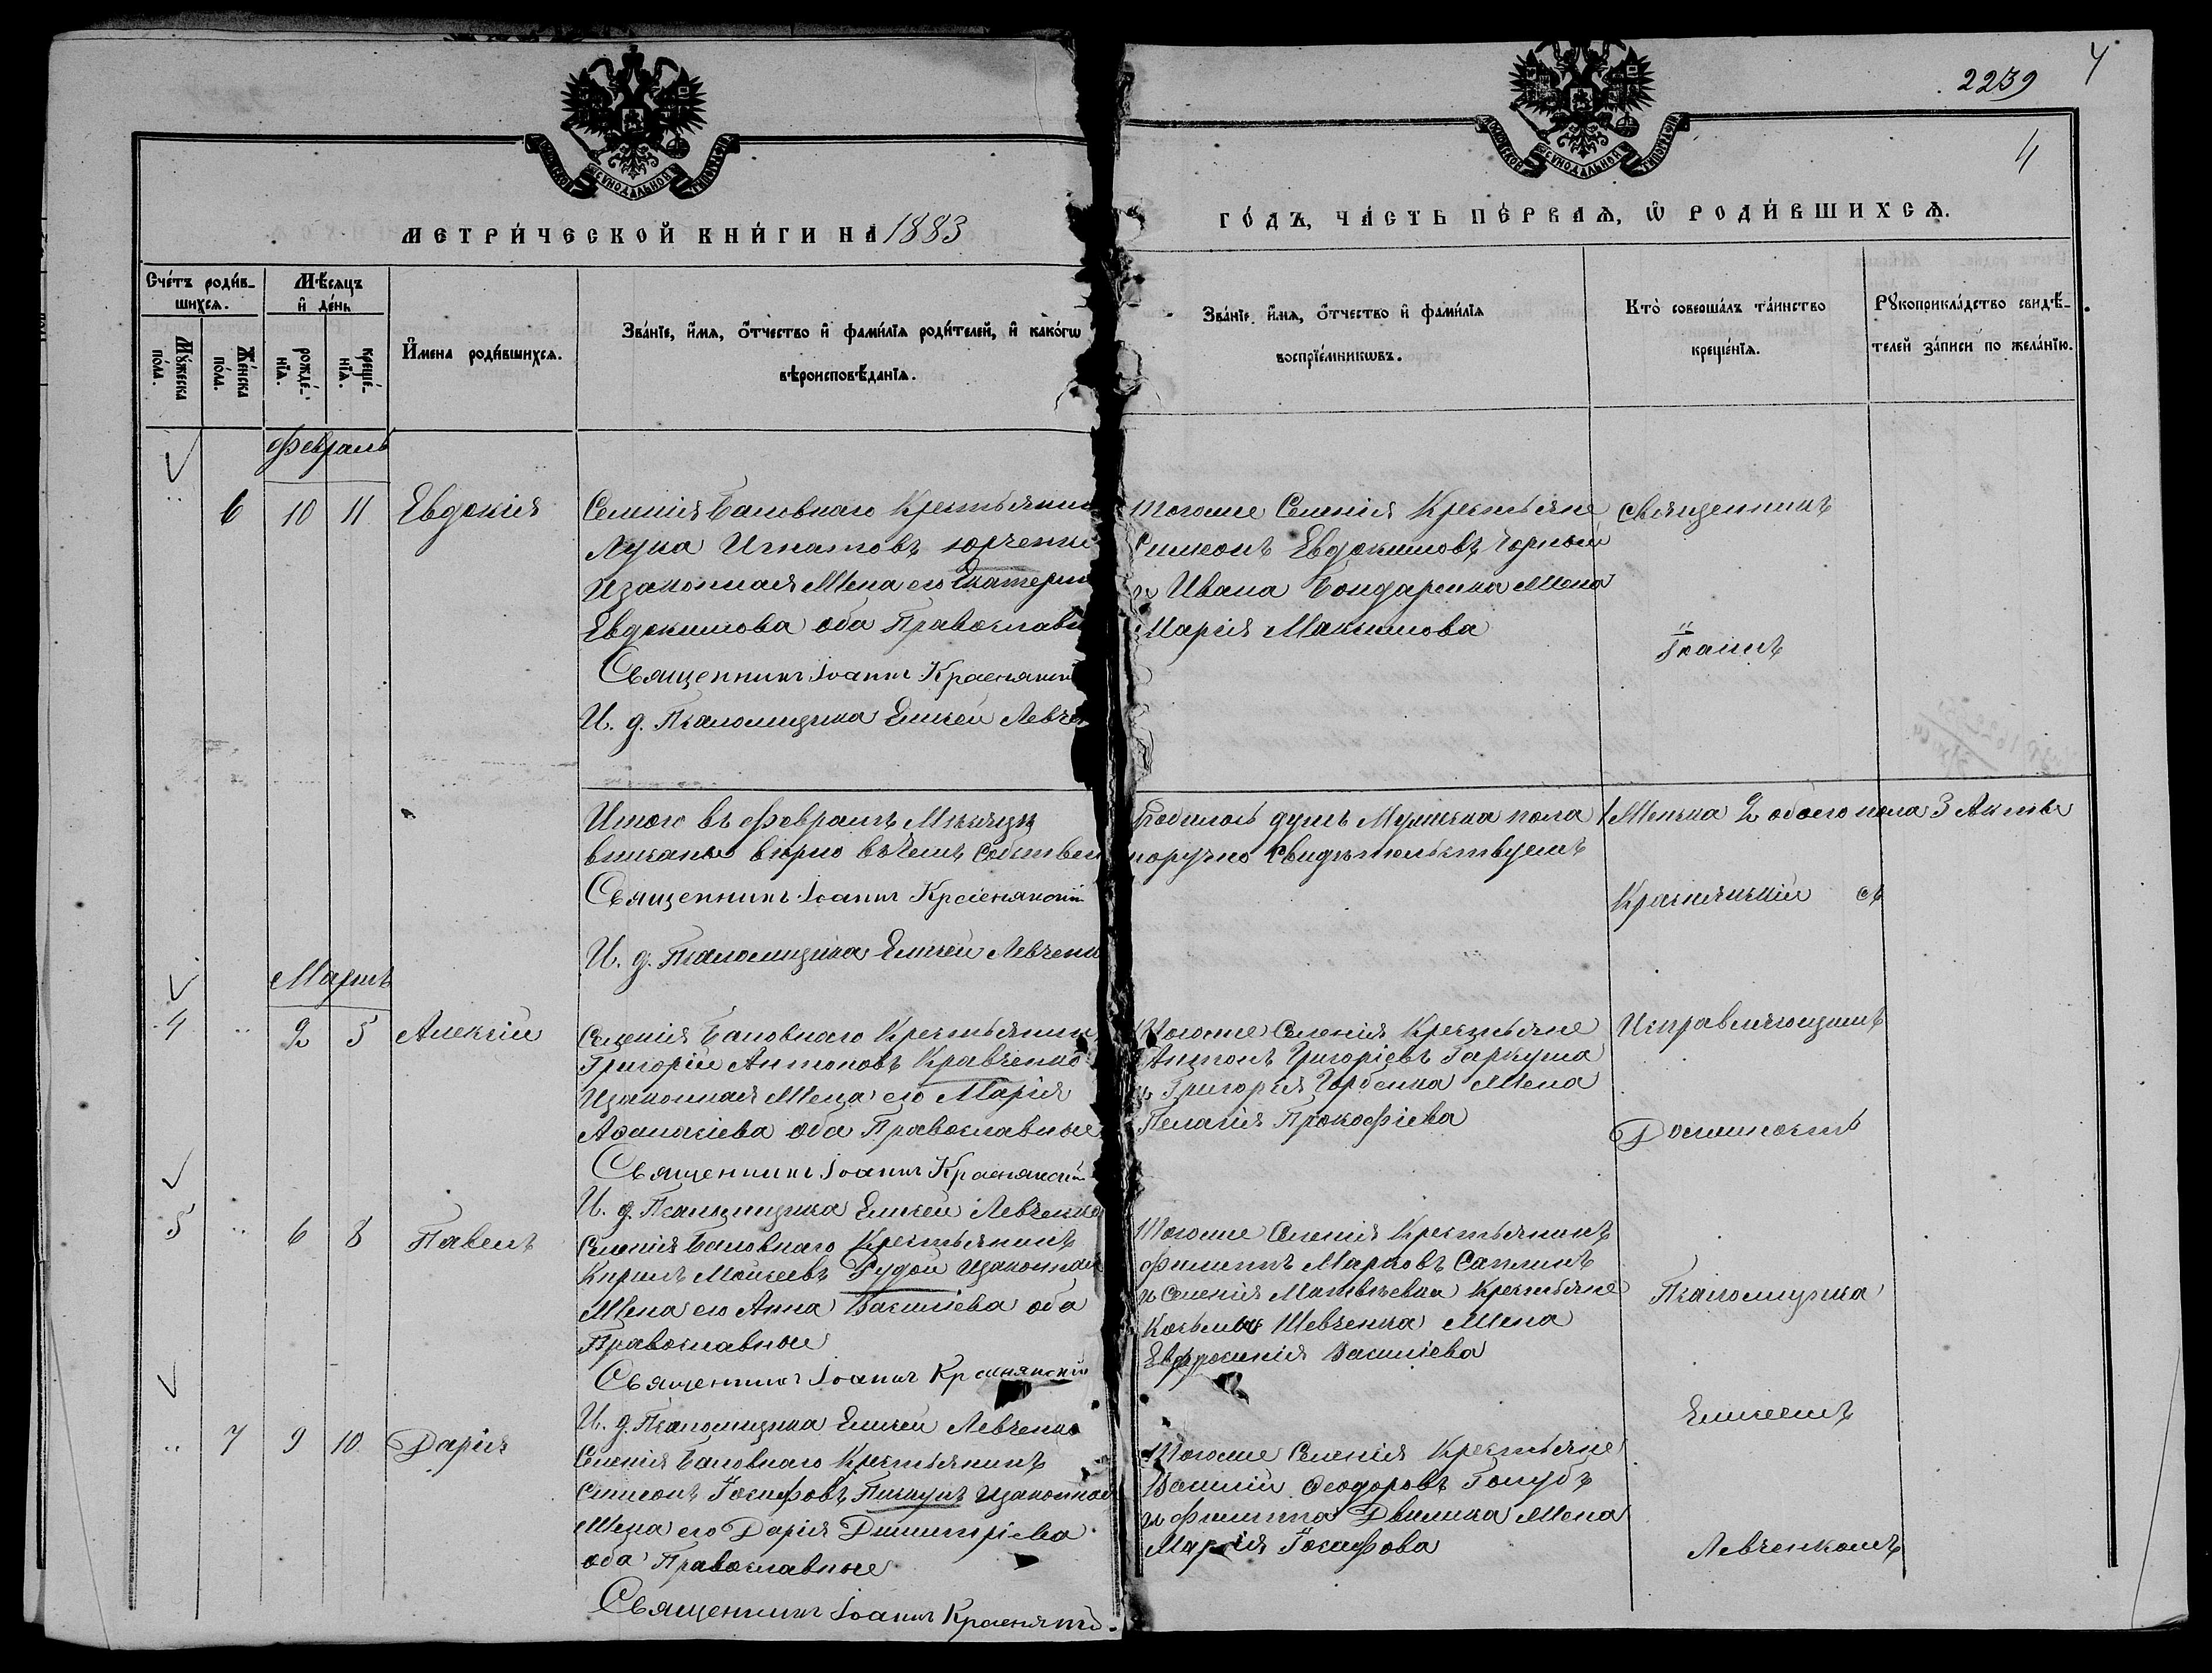 2239
4
4
МОСКОВСКОЙ СѴНОДАЛЬНОЙ ТИПОГРАФІИ
МОСКОВСКОЙ СѴНОДАЛЬНОЙ ТИПОГРАФІИ
МЕТРИ́ЧЕСКОЙ КНИ́ГИ НА 1883
ГО́ДЪ, ЧА́СТЬ ПЕ́РВАѦ, Ѡ РОДИ́ВШИХСѦ.
Сче́тъ роди́в-
шихсѧ.
Мꙋ́жеска
по́ла.
Же́нска
по́ла.
Мѣ́сѧцъ
и҆ де́нь
рожде́-
нїѧ.
креще́-
нїѧ.
И҆мена роди́вшихсѧ.
Зва́нїе, и҆́мѧ, ѻ҆́тчество и҆ фами́лїѧ роди́телей, и҆ како́гѡ
вѣроисповѣ́данїѧ.
Зва́нїе, и҆́мѧ, ѻ҆́тчество и҆ фами́лїѧ
воспрїе́мникѡвъ.
Кто̀ соверша́лъ та́инство
креще́нїѧ.
Рꙋкоприкла́дство свидѣ́-
телей за́писи по жела́нїю.
Февраль
6 10 11 Евдокія
Селенія Баловнаго Крестьянин
Лука Игнатовъ Юрченко
Изаконная Жена его Екатерин
Евдокимова оба Православн
Священникъ Іоаннъ Краснянскій
И. д. Псаломщика Елисей Левчен
Тогоже Селенія Крестьяне
Симеонъ Евдокимовъ Чорный
и Ивана Бондаренка Жена
Марія Максимова
Священникъ
Іоаннъ
Итого въ Февралѣ Мѣсяцѣ
вписаны вѣрно въ чемъ Собствен
Священникъ Іоаннъ Краснянскій
И. д. Псаломщика Елисей Левченк
родилось душъ Мужеска пола 1 Женска 2 обоего пола 3 Акты
норучно Свидѣтельствуемъ
Краснянскій съ
Мартъ
4 2 5 Алексій
Селенія Баловнаго Крестьянин
Григорій Антоновъ Кравченко
Изаконная Жена его Марія
Аѳанасіева оба Православные
Священникъ Іоаннъ Краснянскій
И. д. Псаломщика Елисей Левченко
Тогоже Селенія Крестьяне
Антонъ Григоріевъ Гаркуша
и Григорія Горбенка Жена
Пелагія Прокофіева
Исправляющимъ
Должность
5 6 8 Павелъ
Селенія Баловнаго Крестьянинъ
Кирилъ Моисеевъ Рудой Изаконная
Жена его Анна Василіева оба
Православные
Священникъ Іоаннъ Краснянскій
И. д. Псаломщика Елисей Левченко
Тогоже Селенія Крестьянинъ
Филиппъ Марковъ
и Селенія Матвѣевки Крестьяне
Косьмы Шевченка Жена
Евфросинія Василіева
Псаломщика
Елисеемъ
7 9 10 Дарія
Селенія Баловнаго Крестьянинъ
Симеонъ Іосифовъ Пискунъ Изаконная
Жена его Дарія Димитріева
оба Православные
Священникъ Іоаннъ Краснянскій
Тогоже Селенія Крестьяне
Василій Ѳеодоровъ Голубъ
и Филиппа Жена
Марія Іосифова
Левченкомъ